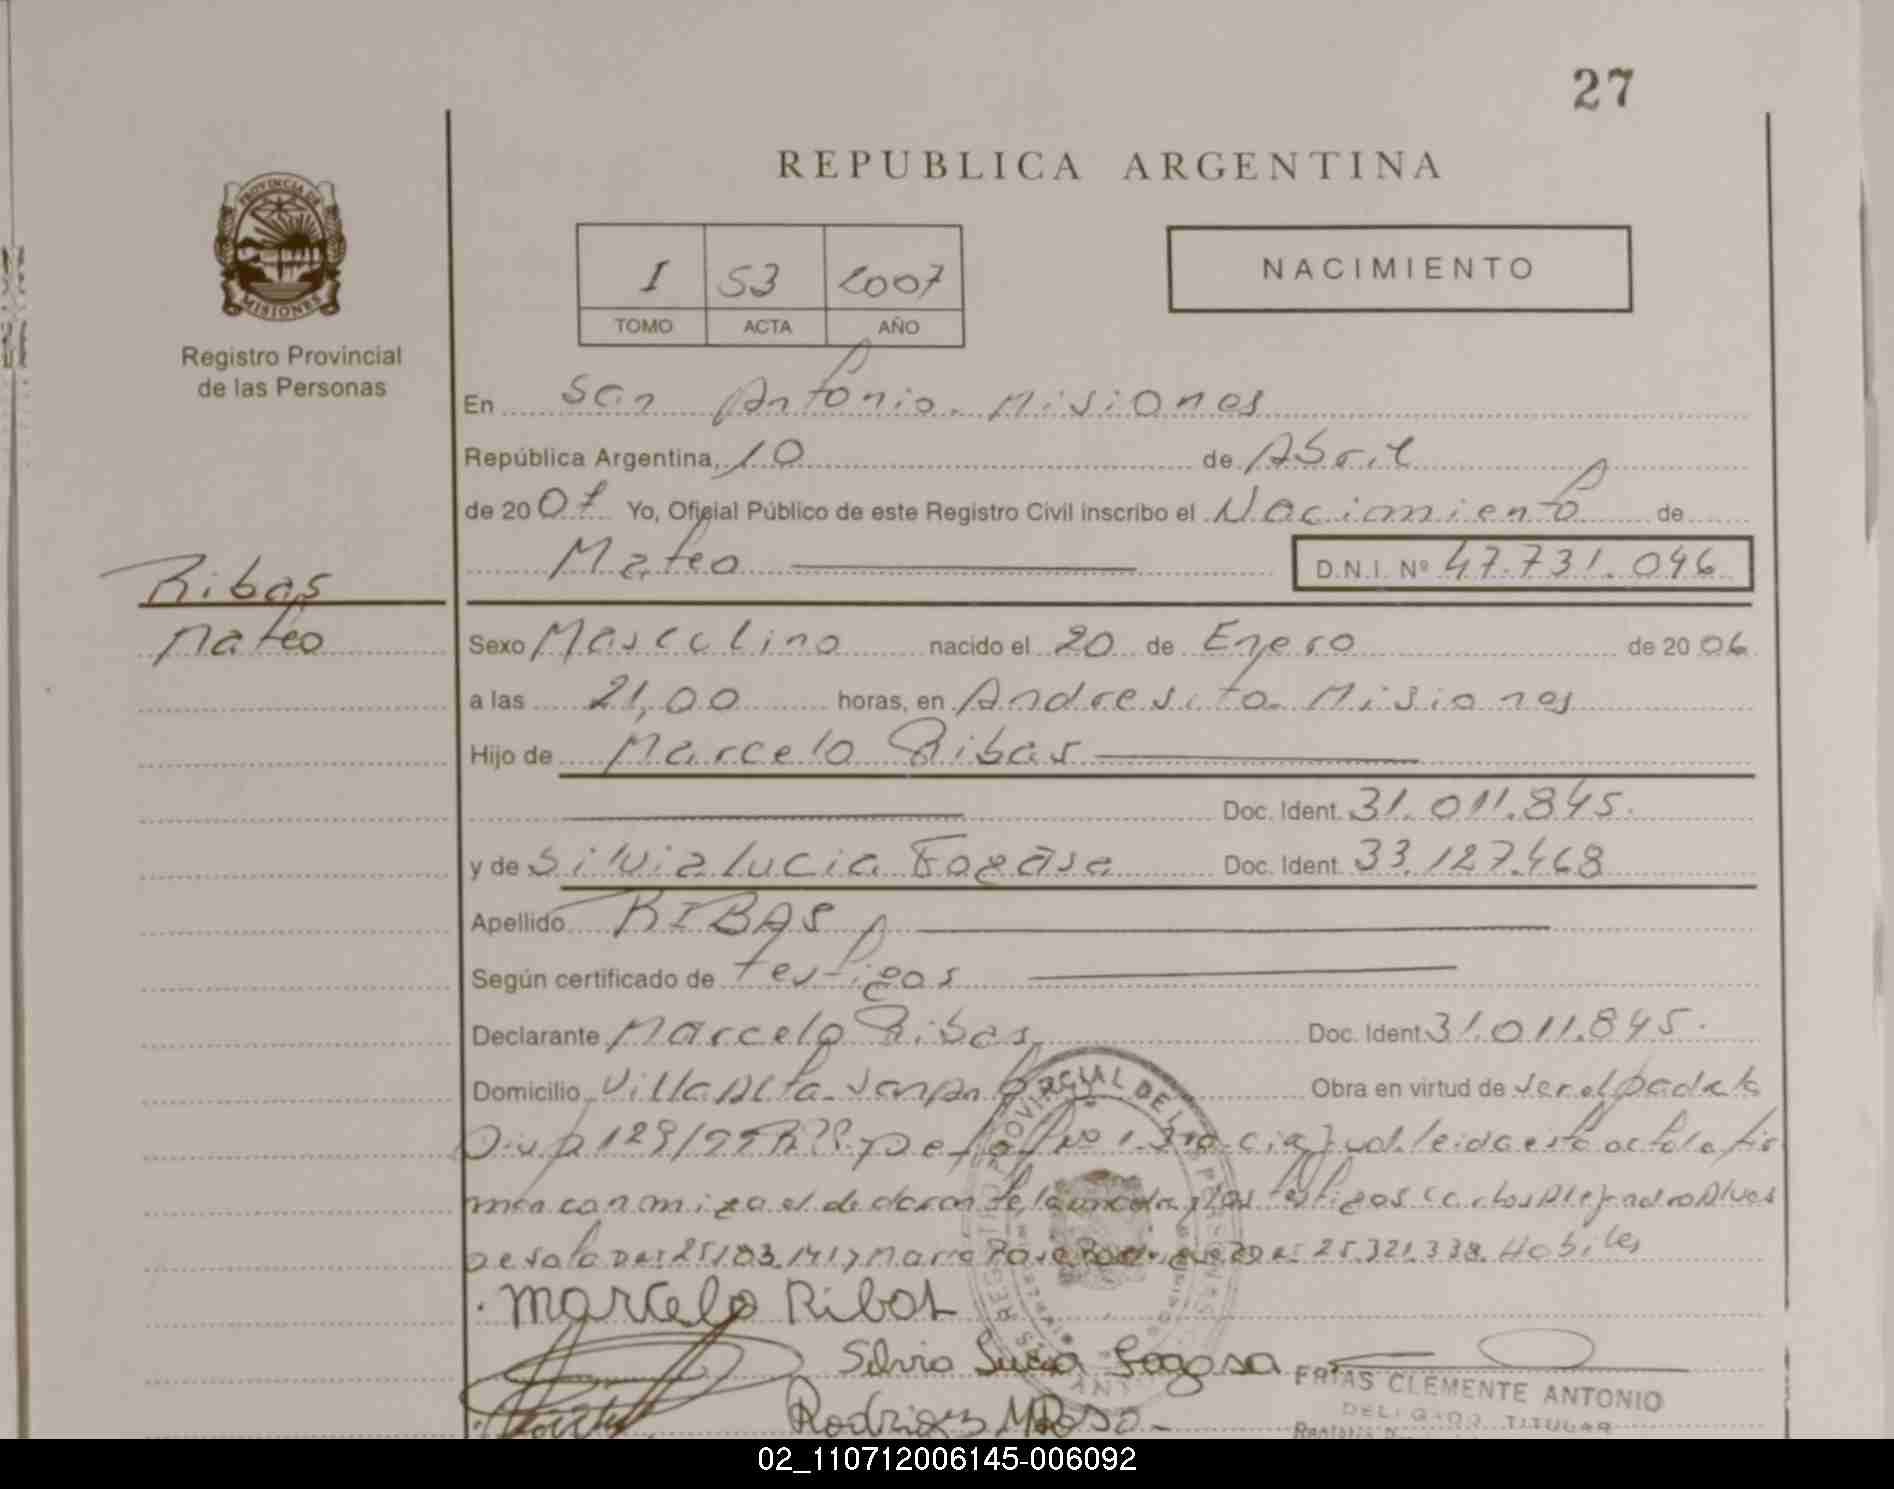 27
REPUBLICA ARGENTINA
PROVINCIA DE
MISIONES
Registro Provincial
de las Personas
I 53 2007
TOMO ACTA AÑO
NACIMIENTO
En San Antonio. Misiones
República Argentina, 10 de Abril
de 2007 Yo, Oficial Público de este Registro Civil inscribo el Nacimiento de
Mateo D.N.I. Nº 47.731.046
Ribas
Mateo
Sexo Masculino nacido el 20 de Enero de 2006
a las 21,00 horas, en Andresito. Misiones
Hijo de Marcelo Ribas
Doc. Ident. 31.011.845.
y de Silvia Lucia Fogasa Doc. Ident. 33.127.468
Apellido RIBAS
Según certificado de testigos
Declarante Marcelo Ribas Doc. Ident. 31.011.845.
Domicilio Villa Alta. San Ant Obra en virtud de ser el padre
129/99 leida esta acta la fir
man conmigo el declarante la madre y los testigos Carlos Alejandro Alves
25.321.338. Habiles
Marcelo Ribas
Silvia Lucia Fogasa
Rodriguez M Rosa
FRIAS CLEMENTE ANTONIO
DELEGADO TITULAR
02_110712006145-006092